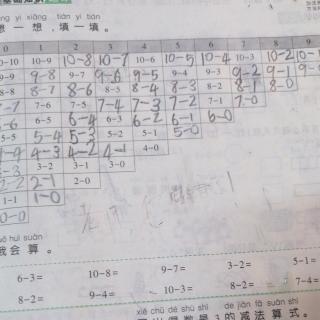 yì xiǎng tián yì tián
想一想,填一填。
0 1 2 3 4 5 6 7 8 9
0-10 10-9 10-8 10-7 10-6 10-5 10-4 10-3 10-2 10-1
9-9 9-8 9-7 9-6 9-5 9-4 9-3 9-2 9-1 9-0
8-8 8-7 8-6 8-5 8-4 8-3 8-2 8-1 8-0
7-7 7-6 7-5 7-4 7-3 7-2 7-1 7-0
6-6 6-5 6-4 6-3 6-2 6-1 6-0
5-5 5-4 5-3 5-2 5-1 5-0
4-4 4-3 4-2 4-1 4-0
3-3 3-2 3-1 3-0
2-2 2-1 2-0
1-1 1-0
0-0
huì suàn
我会算。
6-3= 10-8= 9-7= 3-2= 5-1=
8-2= 9-4= 10-3= 8-2= 7-4=
xiě chū dé shù shì de jiǎn fǎ suàn shì
写出得数是3的减法算式。